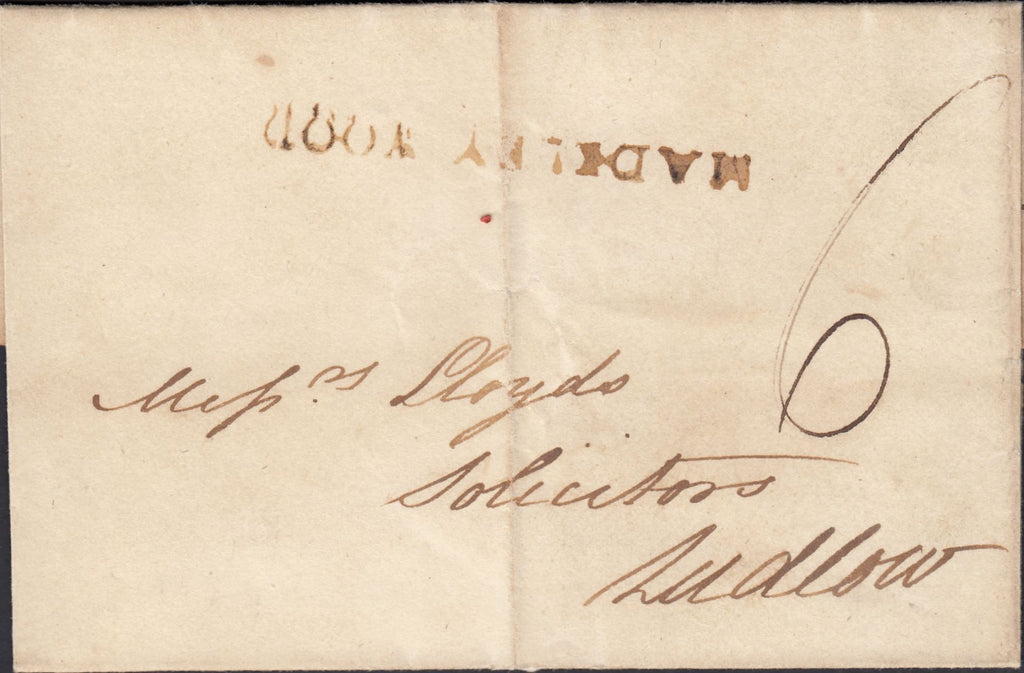 MADELEY WOOD
6
Messrs Lloyds
Solicitors
Ludlow